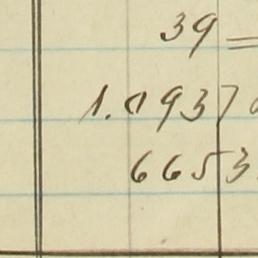 39 =
1.0937
6653